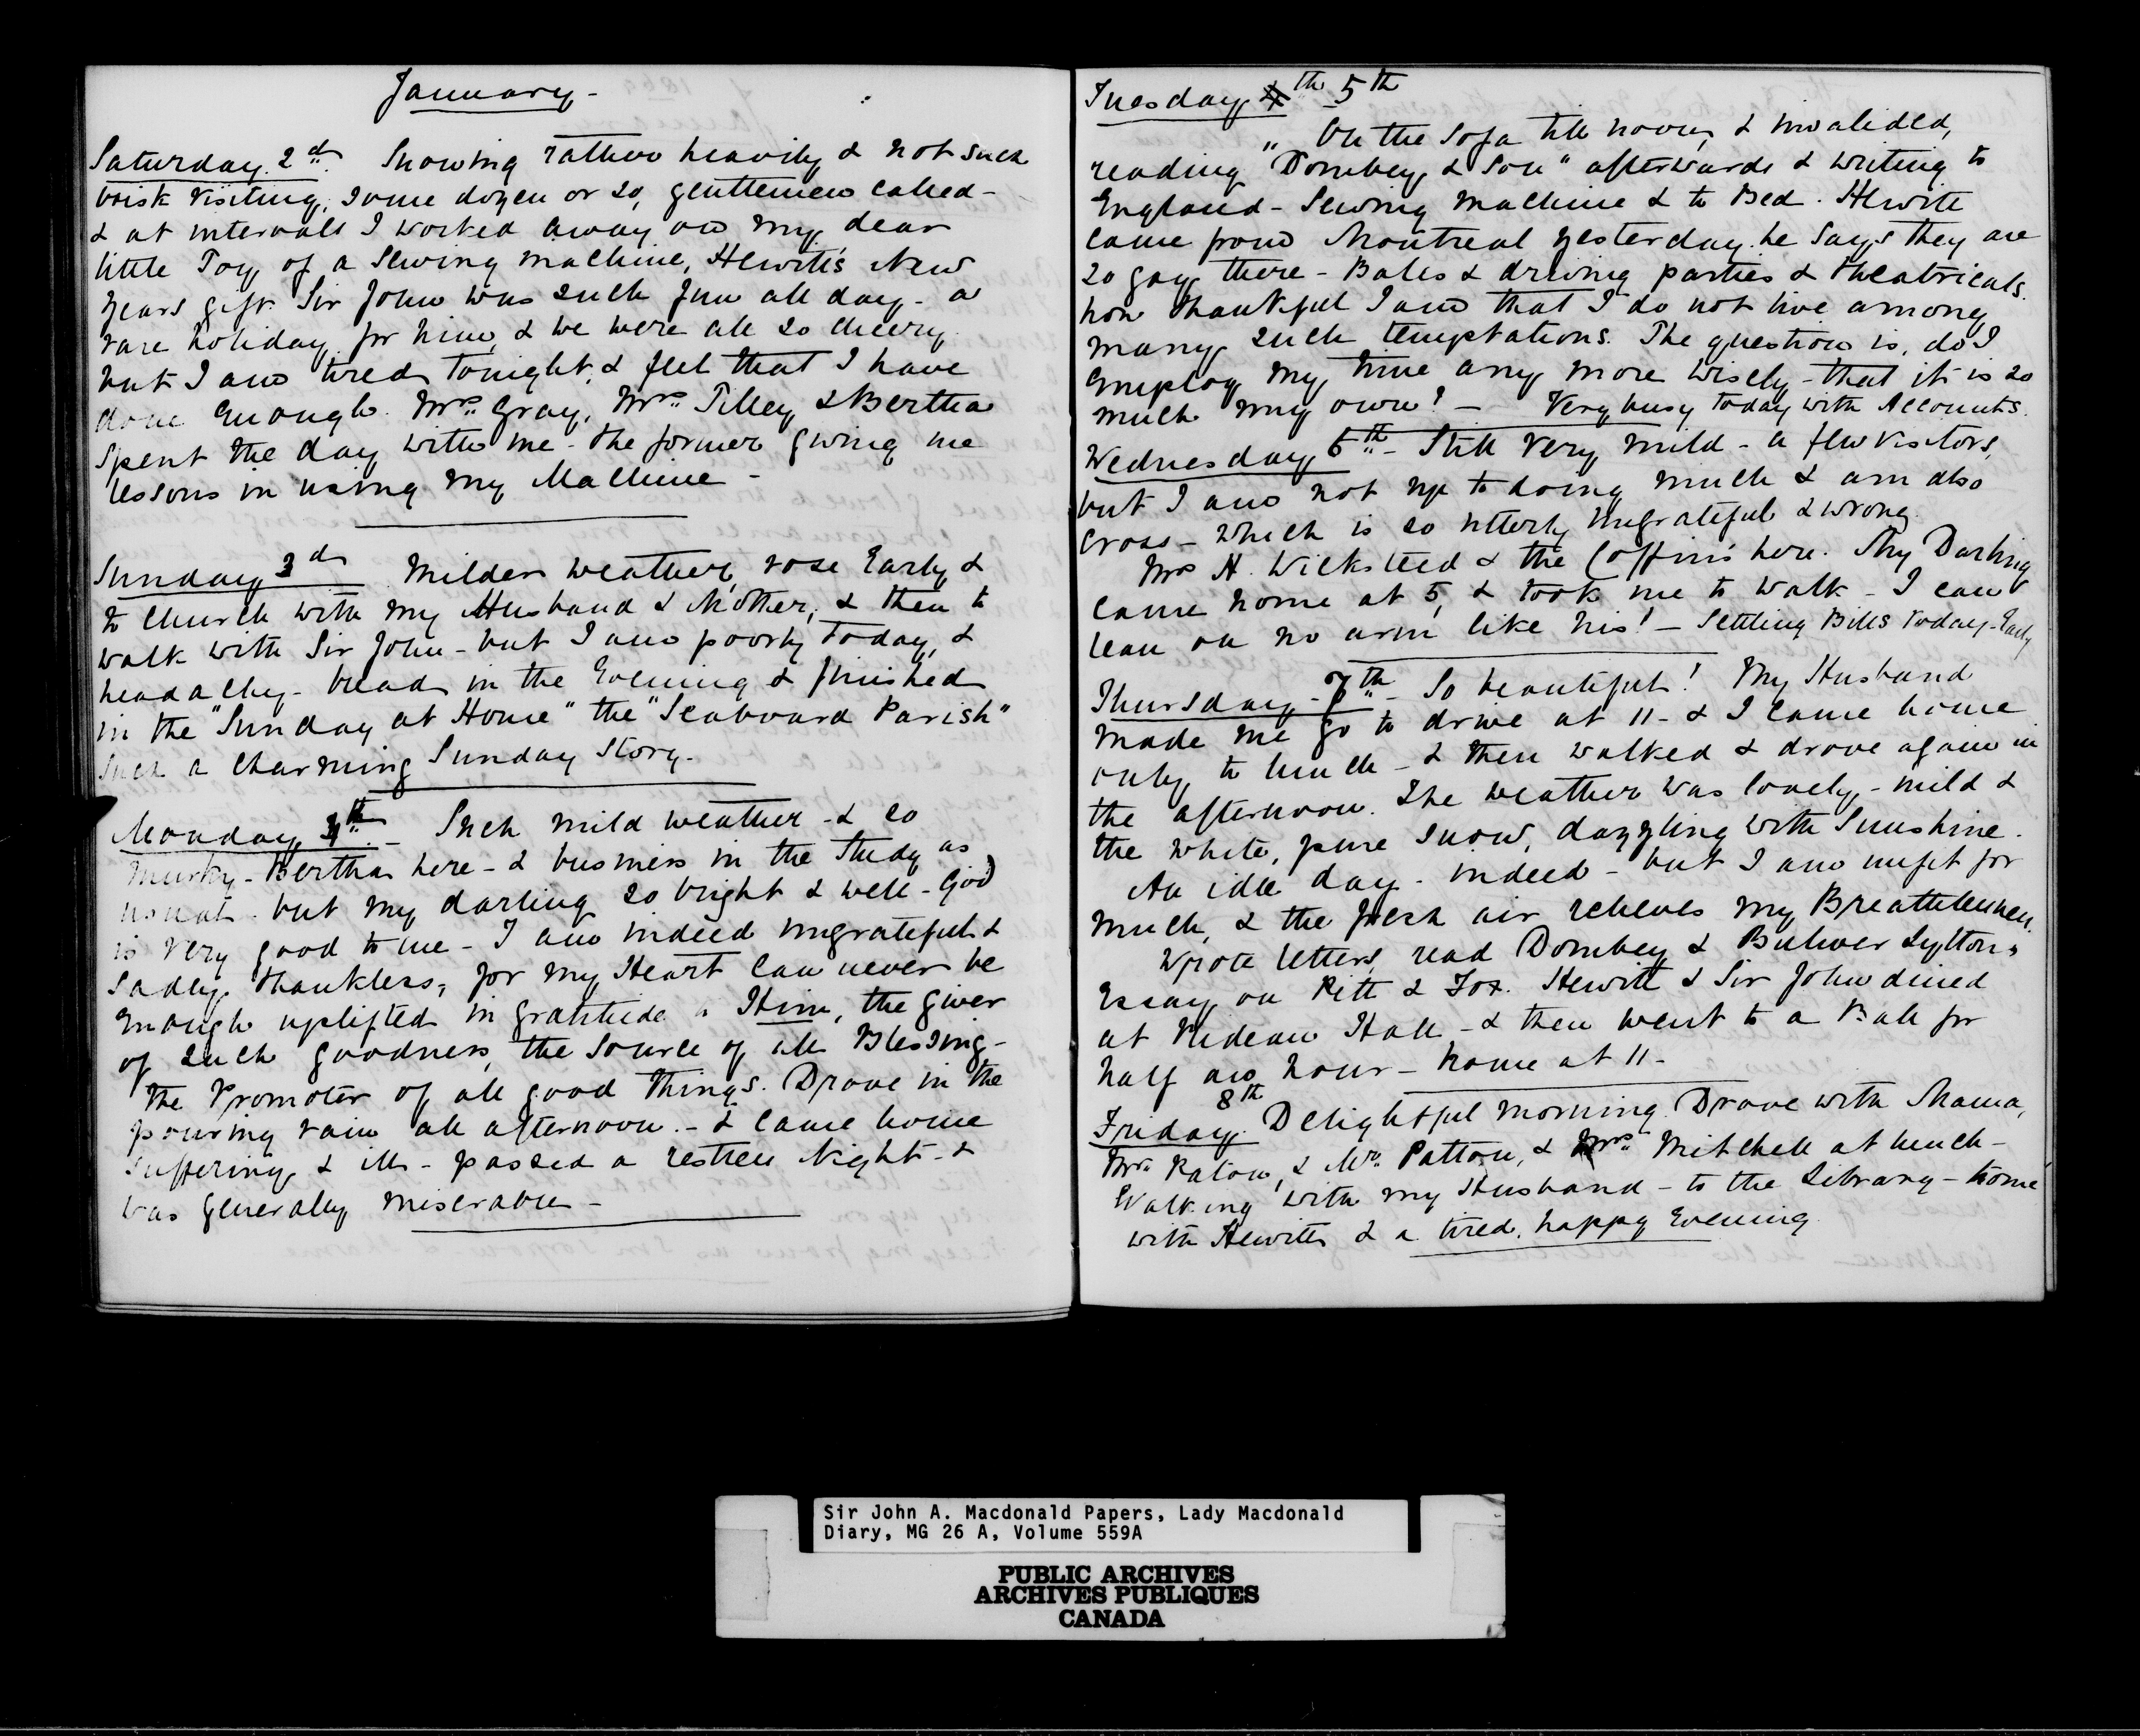 January -
Saturday 2d Snowing rather heavily & not such
brisk visiting, some dozen or so, gentlemen called -
& at intervals I worked away on my dear
little Toy of a Sewing machine, Hewitt's New
Years gift. Sir John was such fun all day - a
rare holiday for him, & we were all so cheery
but I am tired tonight, & feel that I have
done Enough. Mrs. Gray, Mrs. Tilley & Bertha
spent the day with me - the former giving me
lessons in using my Machine -
Sunday 3d Milder weather, rose Early &
to Church with my Husband & Mother, & then to
walk with Sir John - but I am poorly today, &
headachy - read in the Evening & finished
in the "Sunday at Home" the "Seaboard Parish"
such a Charming Sunday Story.
Monday 4th - Such mild weather - & so
murky - Bertha here - & business in the Study as
usual. but my darling so bright & well - God
is very good to me - I am indeed ungrateful &
sadly thankless, for my Heart can never be
Enough uplifted in gratitude to Him, the giver
of such goodness, the Source of all Blessing -
the Promoter of all good things. Drove in the
pouring rain all afternoon - & came home
suffering & ill - passed a restless Night - &
was generally miserable -
Tuesday 4th 5th
" On the Sofa till noon, & invalided,
reading "Dombey & Son" afterwards & writing to
England - Sewing Machine & to Bed. Hewitt
came from Montreal yesterday. he says they are
so gay there - Balls & driving parties & theatricals.
how thankful I am that I do not live among
many such temptations. The question is, do I
Employ my time any more wisely - that it is so
much my own? - Very busy today with Accounts.
Wednesday 6th - Still very mild - a few visitors,
but I am not up to doing much & am also
cross - which is so utterly ungrateful & wrong.
Mrs H. Wicksteed & the Coffins here. My Darling
came home at 5, & took me to walk - I can
lean on no arm like his! - Settling Bills today - Early
Thursday - 7th - So beautiful! My Husband
made me go to drive at 11 - & I came home
only to lunch - & then walked & drove again in
the afternoon. The weather was lovely - mild &
the white, pure snow, dazzling with Sunshine.
An idle day - indeed - but I am unfit for
much, & the fresh air relieves my Breathlessness.
Wrote letters, read Dombey & Bulwer Lytton's
Essay on Pitt & Fox. Hewitt & Sir John dined
at Rideau Hall - & then went to a Ball for
half an hour - home at 11 -
8th
Friday. Delightful morning. Drove with Mama,
Mrs Paton, & Mr. Patton, & Mrs. Mitchell at lunch -
Walking with my Husband - to the Library - home
with Hewitt & a tired, happy Evening
Sir John A. Macdonald Papers, Lady Macdonald
Diary, MG 26 A, Volume 559A
PUBLIC ARCHIVES
ARCHIVES PUBLIQUES
CANADA